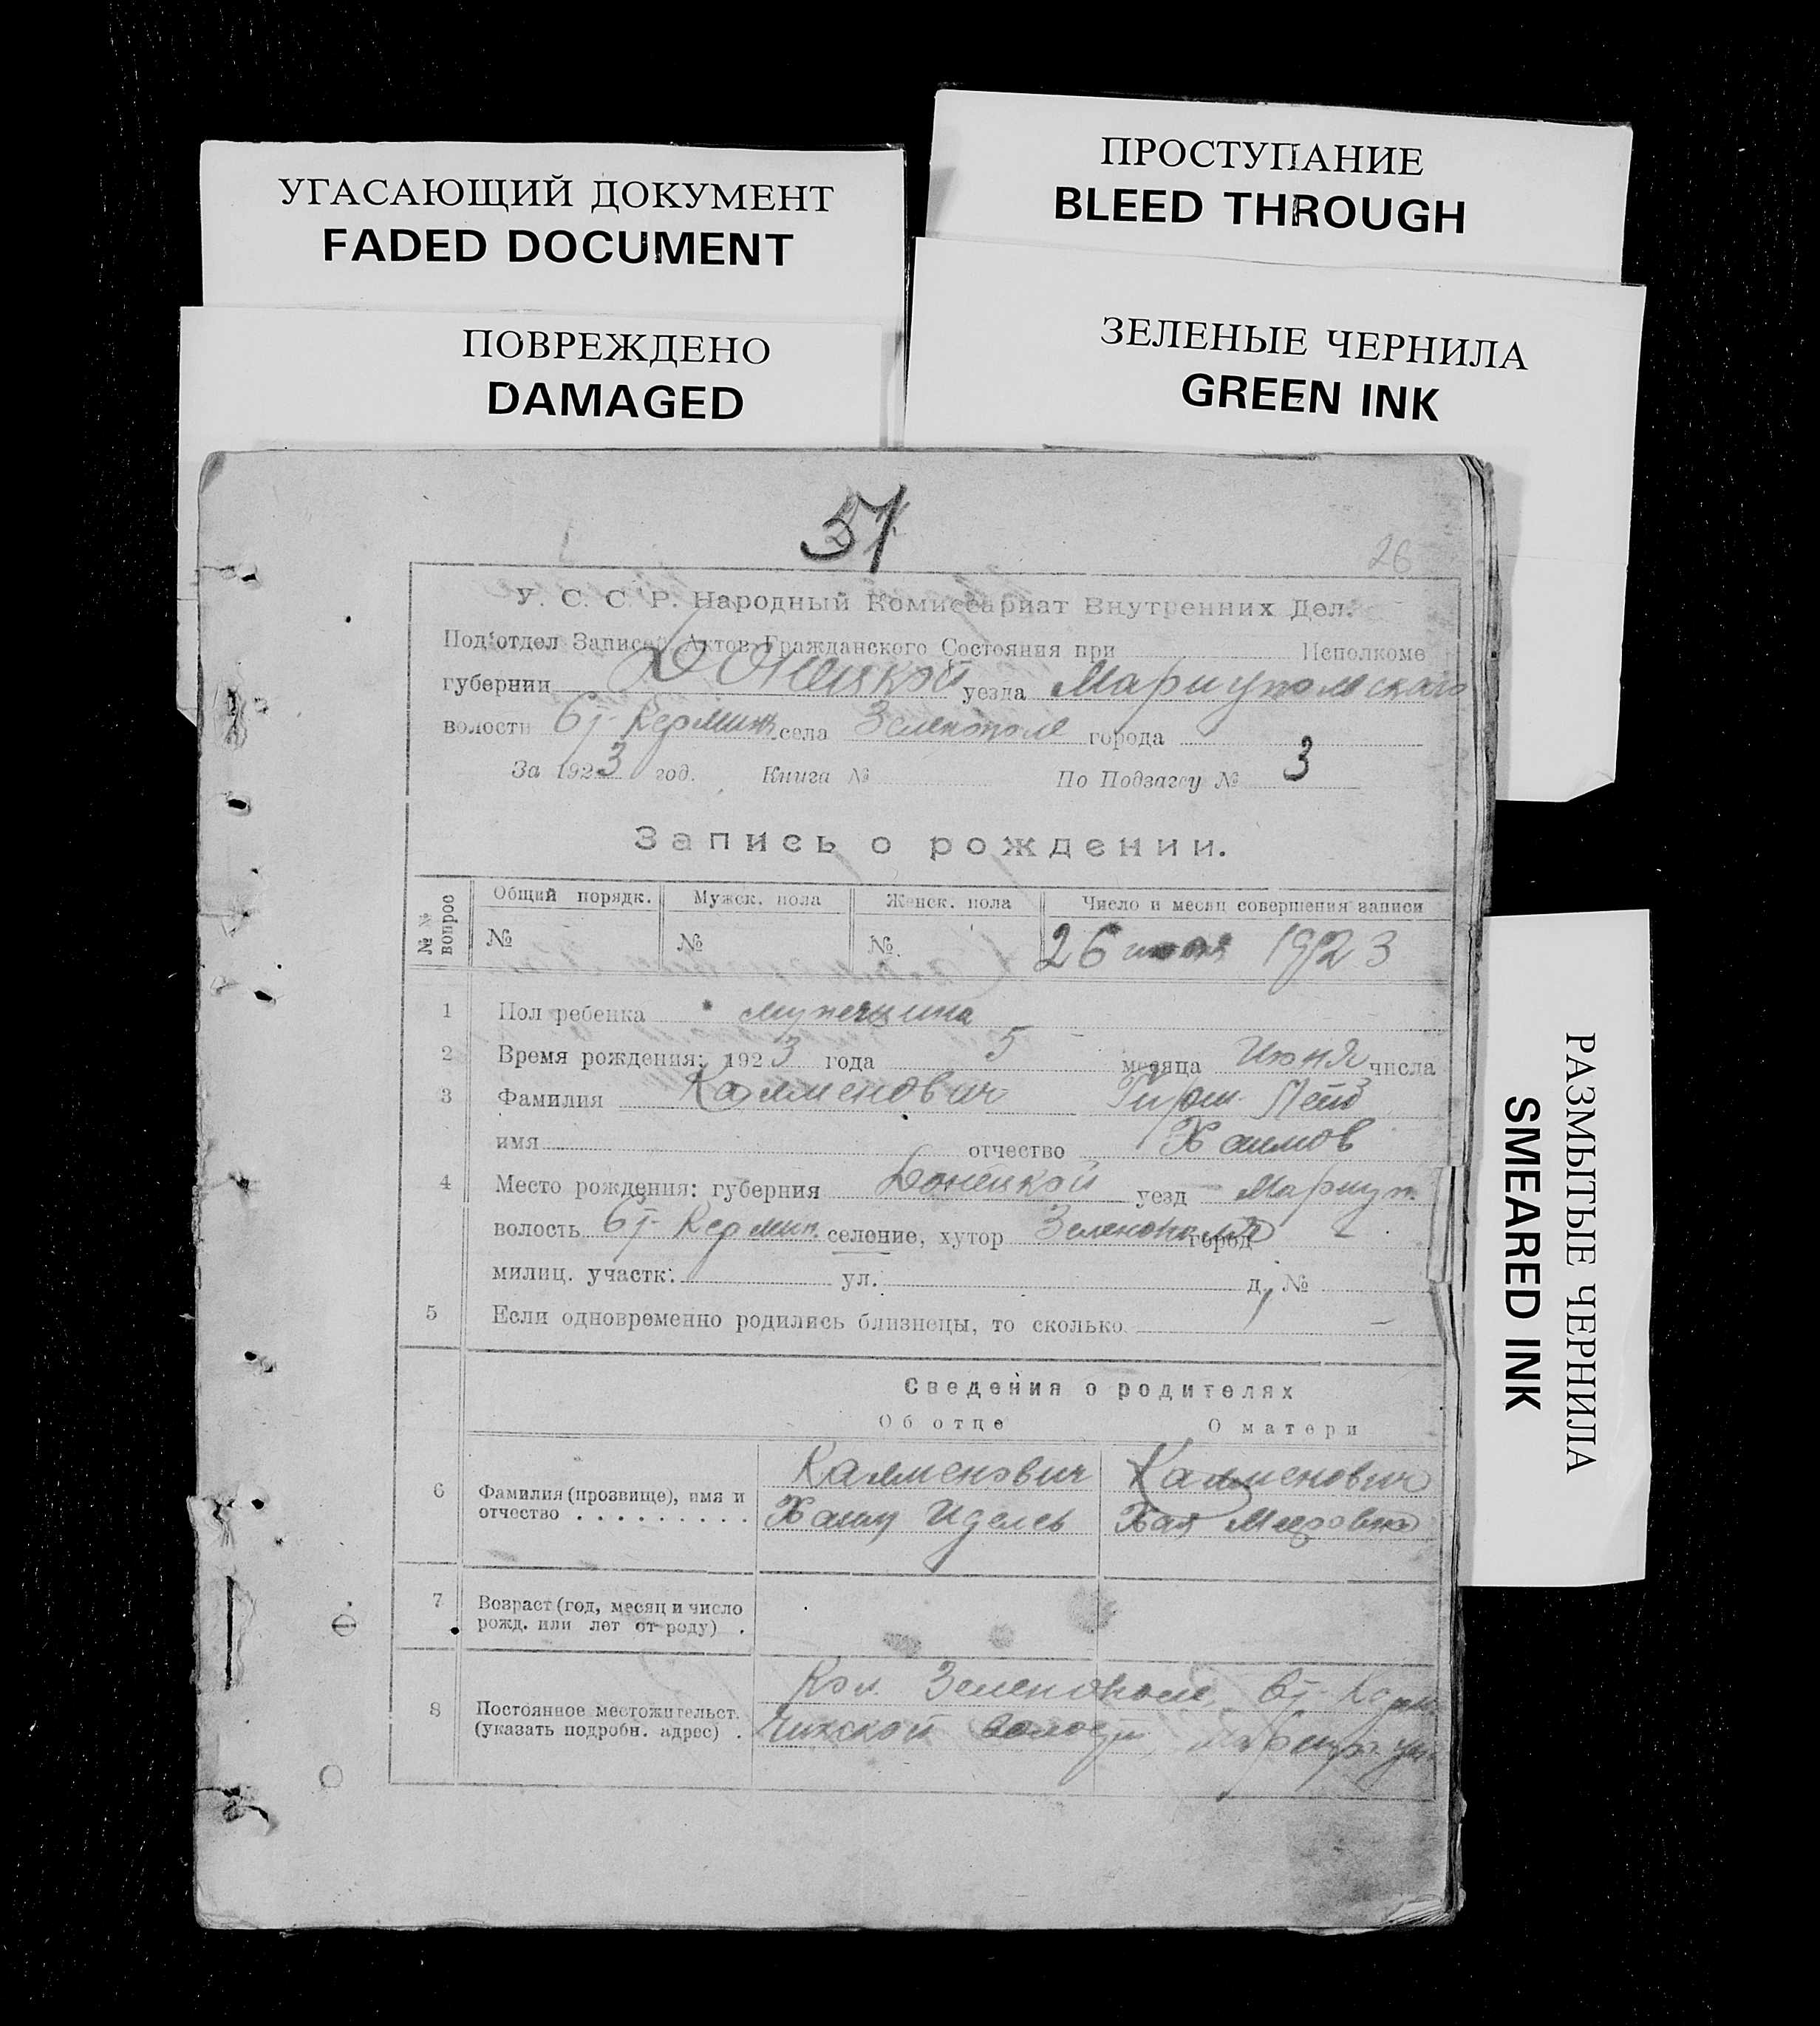 УГАСАЮЩИЙ ДОКУМЕНТ
FADED DOCUMENT
ПРОСТУПАНИЕ
BLEED THROUGH
ПОВРЕЖДЕНО
DAMAGED
ЗЕЛЕНЫЕ ЧЕРНИЛА
GREEN INK
РАЗМЫТЫЕ ЧЕРНИЛА
SMEARED INK
57
26
У. С. С. Р. Народный Комиссариат Внутренних Дел.
Под'отдел Записей Актов Гражданского Состояния при Исполкоме
губернии Донецкой уезда Мариупольского
волости Ст-Кермин. села Зеленополе города
За 1923 год. Книга № По Подзагсу № 3
Запись о рождении.
№№ вопрос Общий порядк. Мужск. пола Женск. пола Число и месяц совершения записи
№ № № 26 июня 1923
1 Пол ребенка мужчина
2 Время рождения: 1923 года 5 месяца Июня числа
3 Фамилия Калменович Гирш Лейб
имя отчество Хаимов
4 Место рождения: губерния Донецкой уезд Мариуп.
волость Ст-Кермин. селение, хутор Зеленополе город
милиц. участк. ул. д. №
5 Если одновременно родились близнецы, то сколько —
Сведения о родителях
Об отце О матери
6 Фамилия (прозвище), имя и отчество Калменович Калменович
Хаим Иделев Хая Мееровна
7 Возраст (год, месяц и число рожд. или лет от роду)
8 Постоянное местожительст. (указать подробн. адрес) Кол. Зеленополе, Ст-Керм
чикской волости